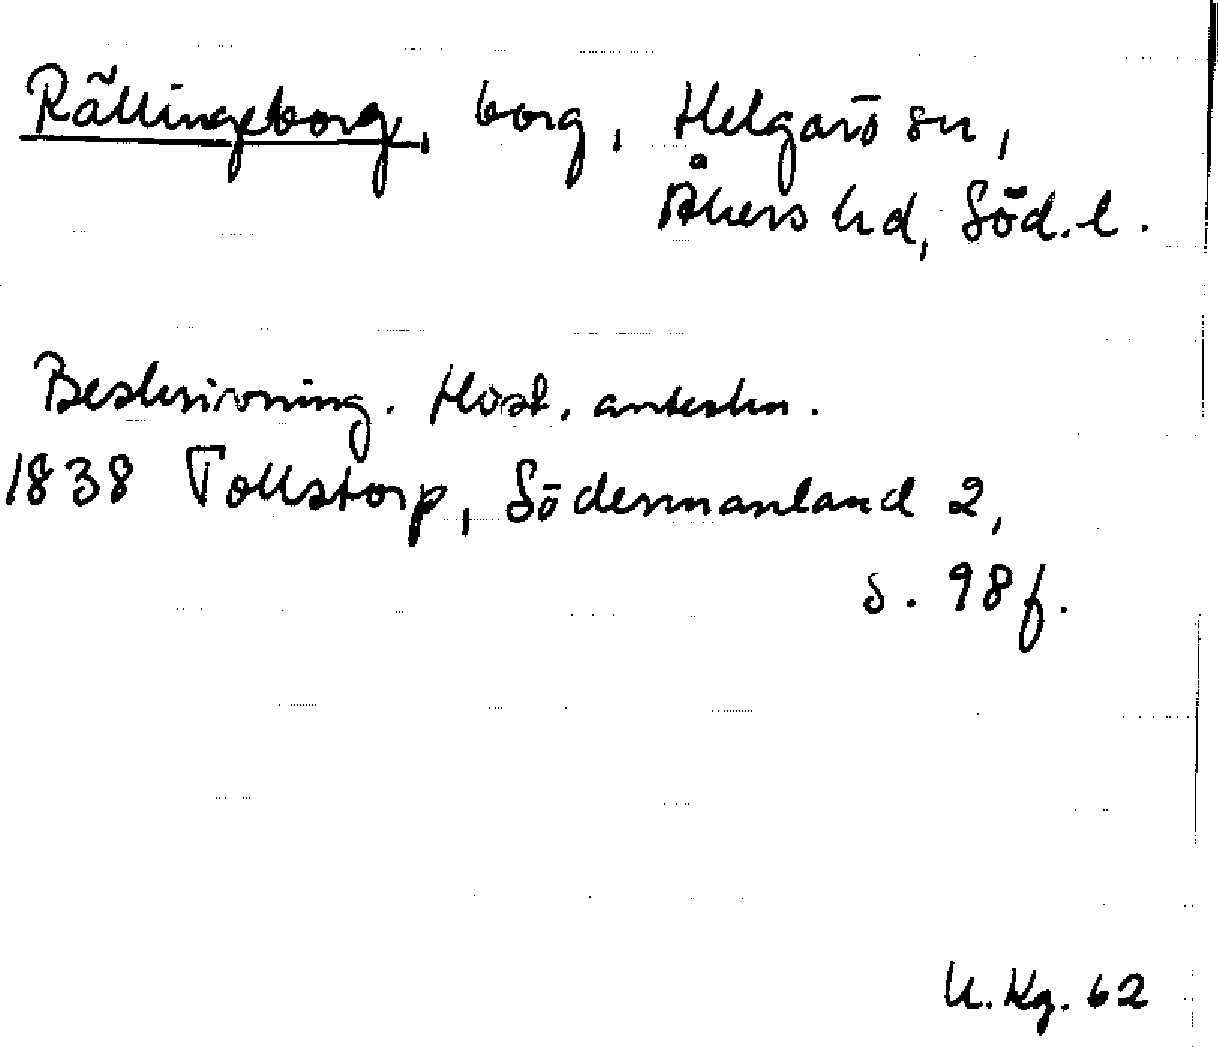 Rällingeborg, borg, Helgarö sn,
Åkers hd, Söd. l.
Beskrivning. Hist. anteckn.
1838 Tollstorp, Södermanland 2,
s. 98 f.
K. Hg. 62